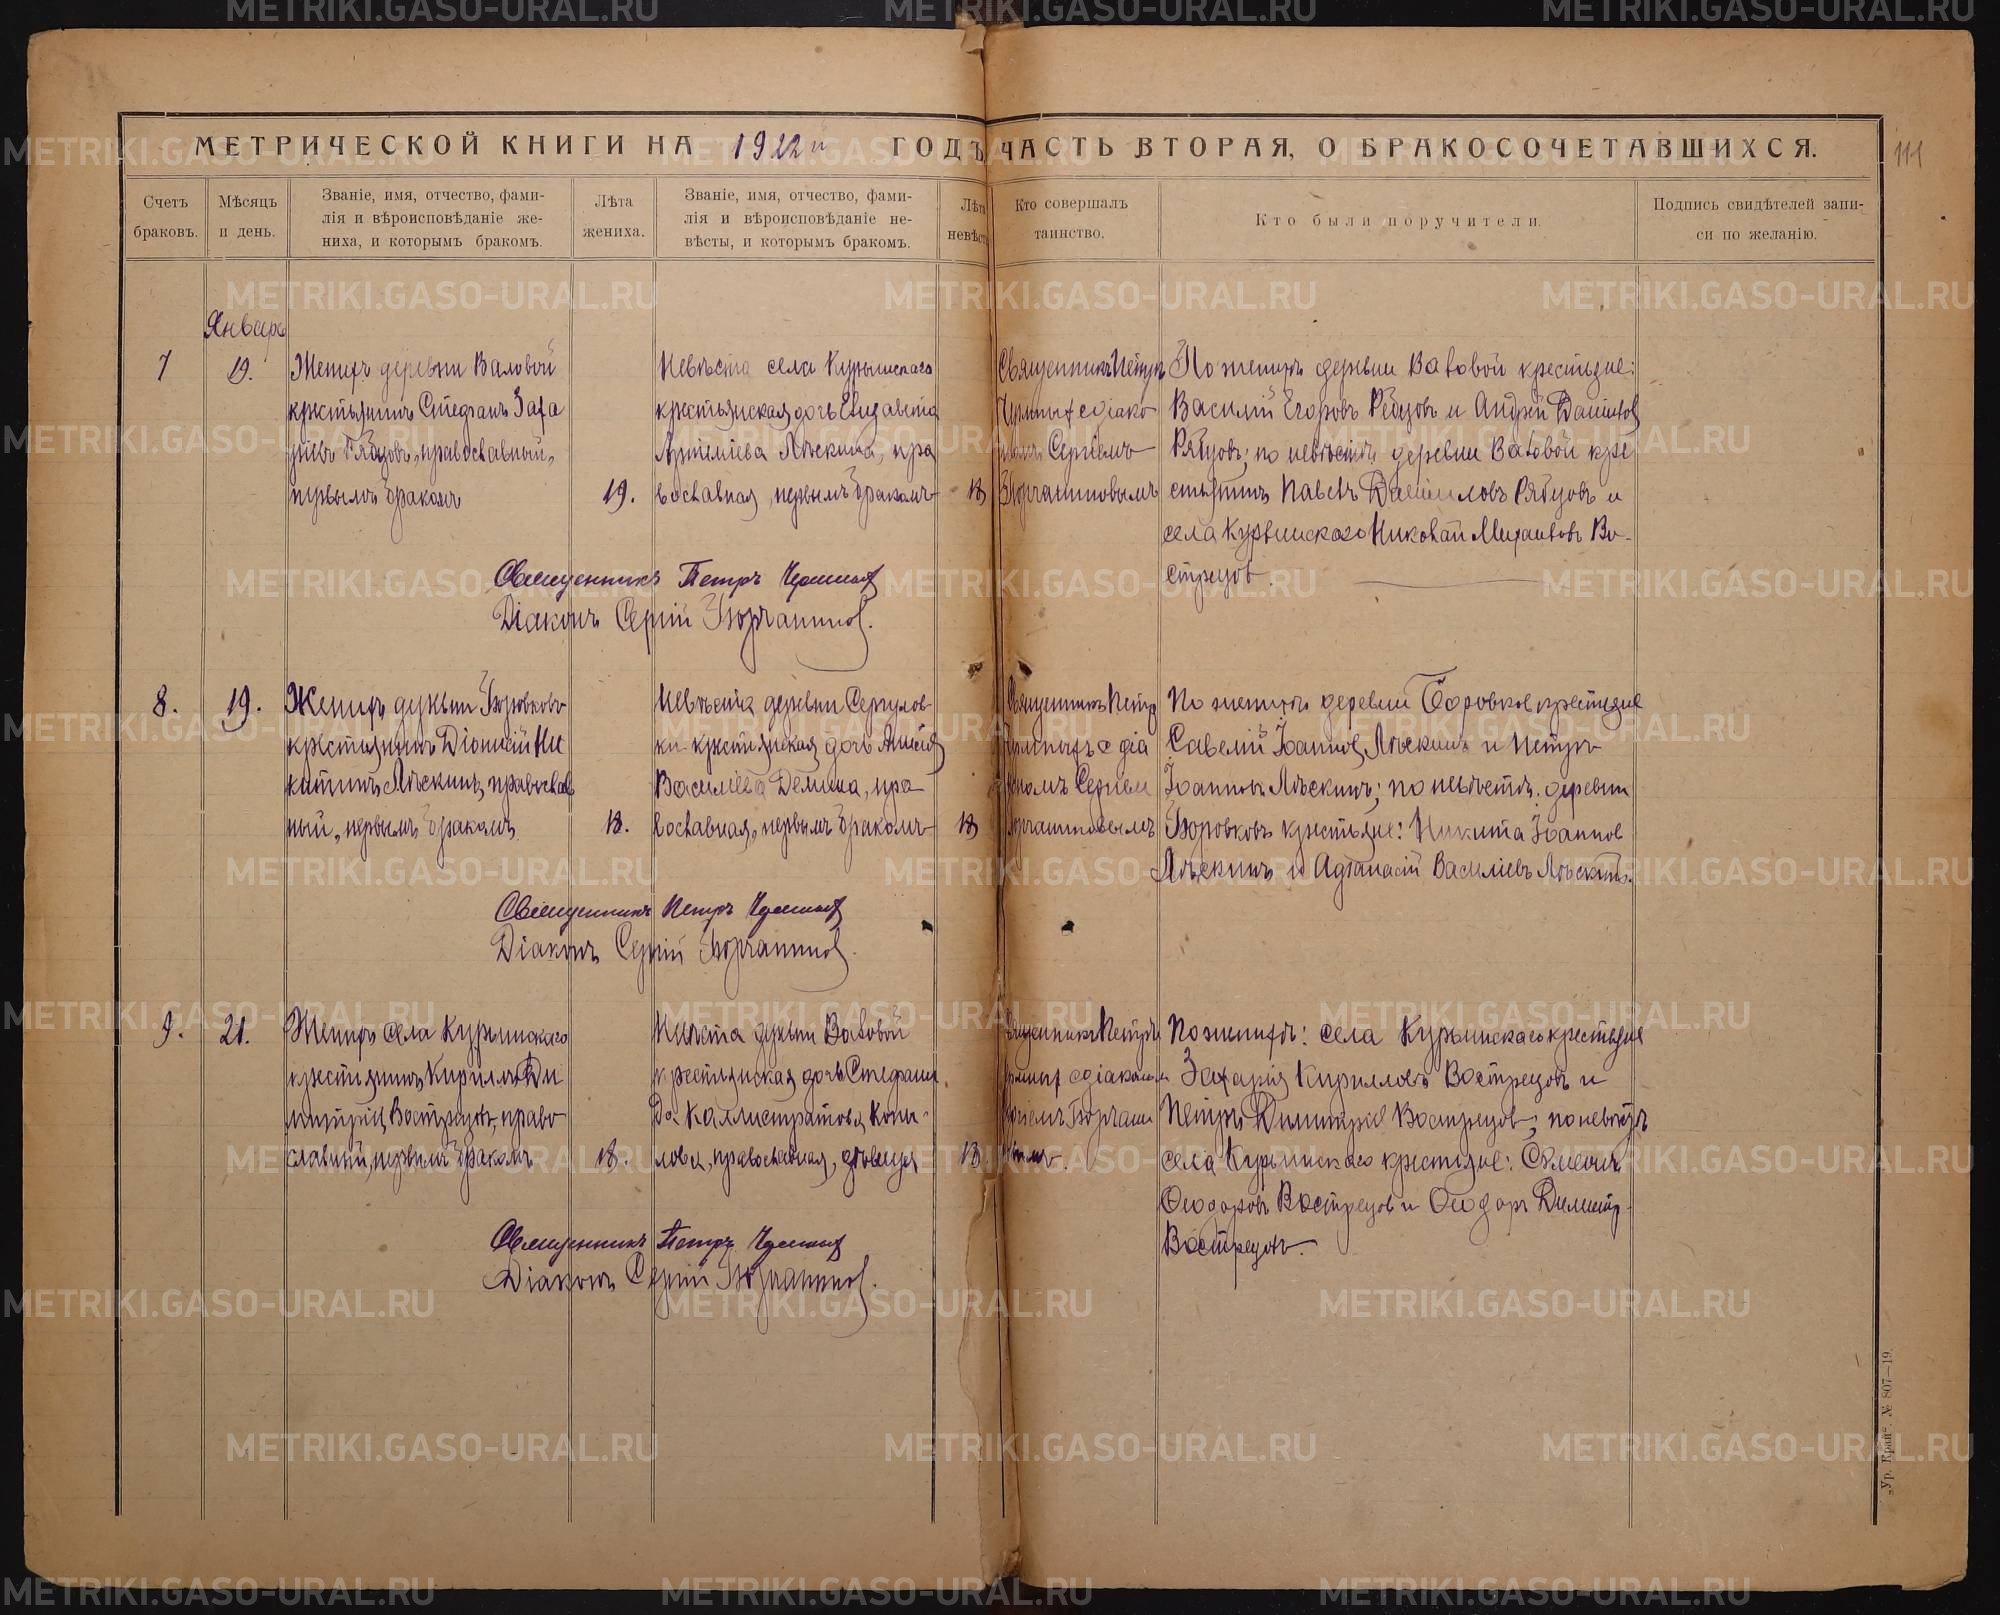 МЕТРИЧЕСКОЙ КНИГИ НА 1922й ГОДЪ ЧАСТЬ ВТОРАЯ, О БРАКОСОЧЕТАВШИХСЯ.
111
Счетъ браковъ.
Мѣсяцъ и день.
Званіе, имя, отчество, фами-
лія и вѣроисповѣданіе же-
ниха, и которымъ бракомъ.
Лѣта жениха.
Званіе, имя, отчество, фами-
лія и вѣроисповѣданіе не-
вѣсты, и которымъ бракомъ.
Лѣта невѣст
Кто совершалъ таинство.
Кто были поручители.
Подпись свидѣтелей запи-
си по желанію.
Январь
7
19.
Женихъ деревни Валовой
крестьянинъ Стефанъ Заха
ріевъ Рябцовъ, православный,
первымъ бракомъ
19.
Невѣста села Курьинскаго
крестьянская дочь Елизавета
Артеміева Лѣскина, пра
вославная, первымъ бракомъ
18
Священникъ Петръ
съ діако
номъ Сергіемъ
По женихѣ деревни Валовой крестьяне:
Василій Егоровъ Рябцовъ и Андрей Даниловъ
Рябцовъ; по невѣстѣ деревни Валовой кре
стьянинъ Павелъ Даниловъ Рябцовъ и
села Курьинскаго Николай Михаиловъ Во-
стрецов.
Священникъ Петръ
Діаконъ Сергій
8.
19.
Женихъ деревни Боровковъ
крестьянинъ Діонисій Ни
китинъ Лѣскинъ, православ
ный, первымъ бракомъ
18.
Невѣста деревни Сергулов-
ки крестьянская дочь Анисія
Василіева Демина, пра
вославная, первымъ бракомъ
18
Священникъ Петр
съ діа
кономъ Сергіем
По женихѣ деревни Боровков крестьяне
Савелій Іоаннов Лѣскинъ и Петръ
Іоанновъ Лѣскинъ; по невѣстѣ: деревни
Боровковъ крестьяне: Никита Іоаннов
Лѣскинъ и Афанасій Василіевъ Лѣскинъ.
Священникъ Петръ
Діаконъ Сергій
9.
21.
Женихъ села Курьинскаго
крестьянинъ Кириллъ Ди
митріев Вострецовъ, право
славный, первымъ бракомъ
18.
Невѣста деревни Валовой
крестьянская дочь Стефани
да Каллистратова Копы-
лова, православная, дѣвица
18
Священникъ Петръ
съ діаконом
По женихѣ: села Курьинскаго крестьяне
Захарія Кирилловъ Вострецовъ и
Петръ Димитріев Вострецов; по невѣстѣ
села Курьинскаго крестьяне: Симеонъ
Ѳеодоровъ Вострецов и Ѳеодоръ Димитр.
Вострецовъ.
Священникъ Петръ
Діаконъ Сергій
„Ур. Край“. № 807—19.
METRIKI.GASO-URAL.RU